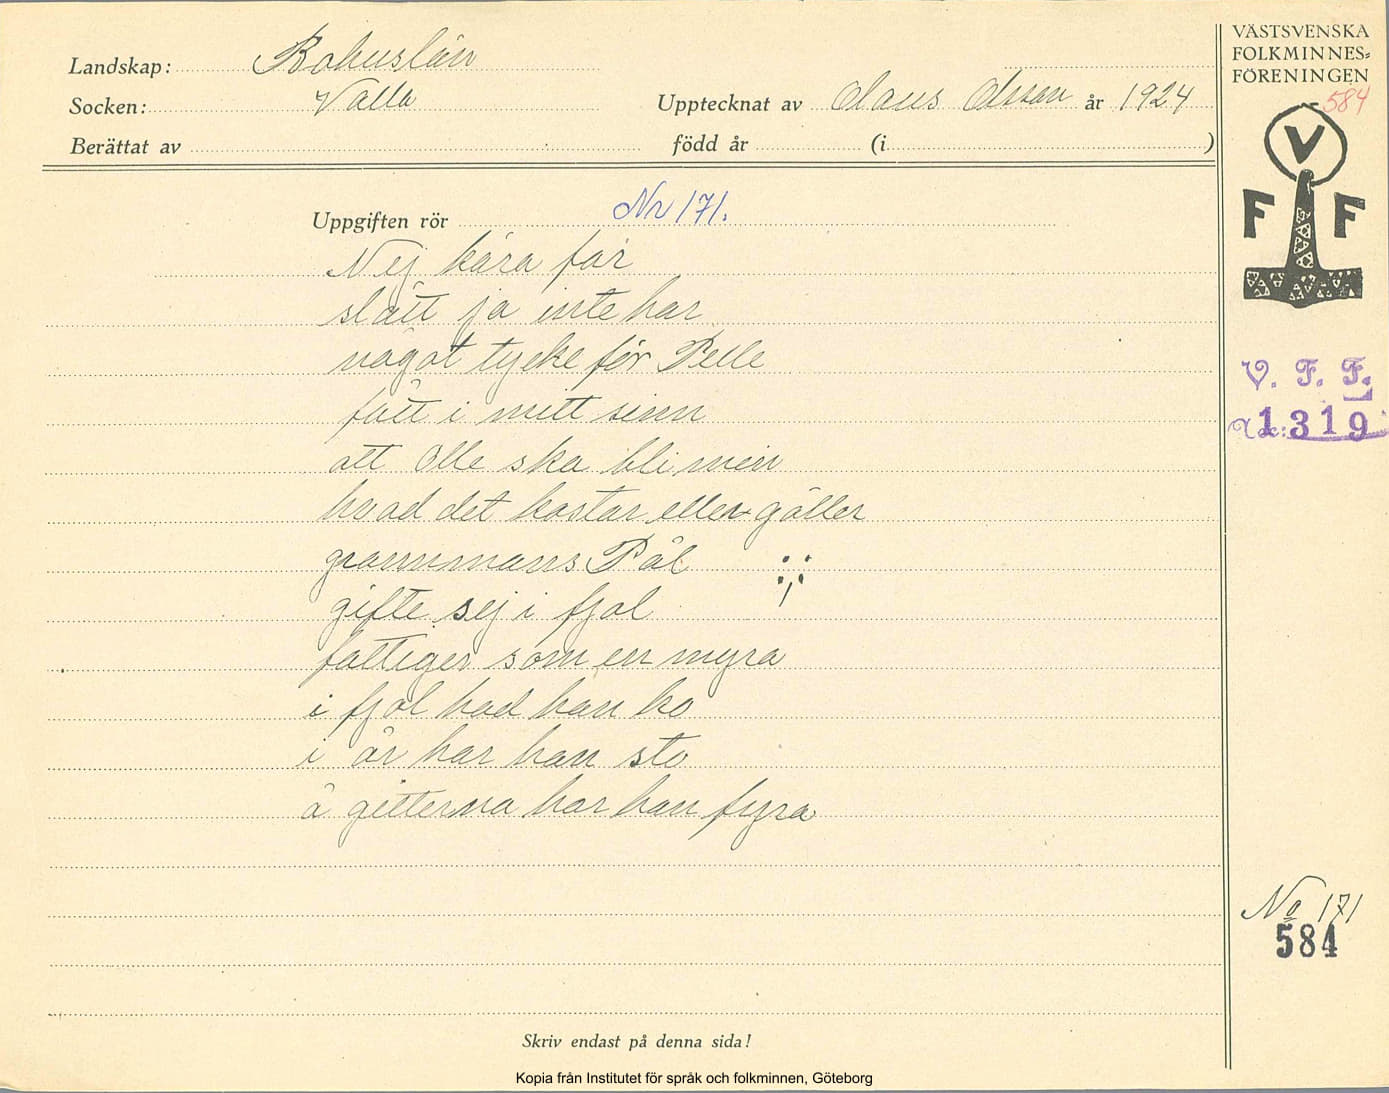 Landskap: Bohuslän
Socken: Valla
Upptecknat av Claus Olsson år 1924
Berättat av
född år (i )
VÄSTSVENSKA
FOLKMINNES=
FÖRENINGEN
584
V
F F
V. F. F.
1319
Uppgiften rör Nr 171.
Nej kära far
slätt ja inte har
något tycke för Pelle
fått i mitt sinn
att Olle ska bli min
hvad det kostar eller gäller
grannmans Pål
gifte sej i fjol
fattiger som en myra
i fjol had han ko
i år har han sto
å getterna har han fyra
No 171
584
Skriv endast på denna sida!
Kopia från Institutet för språk och folkminnen, Göteborg